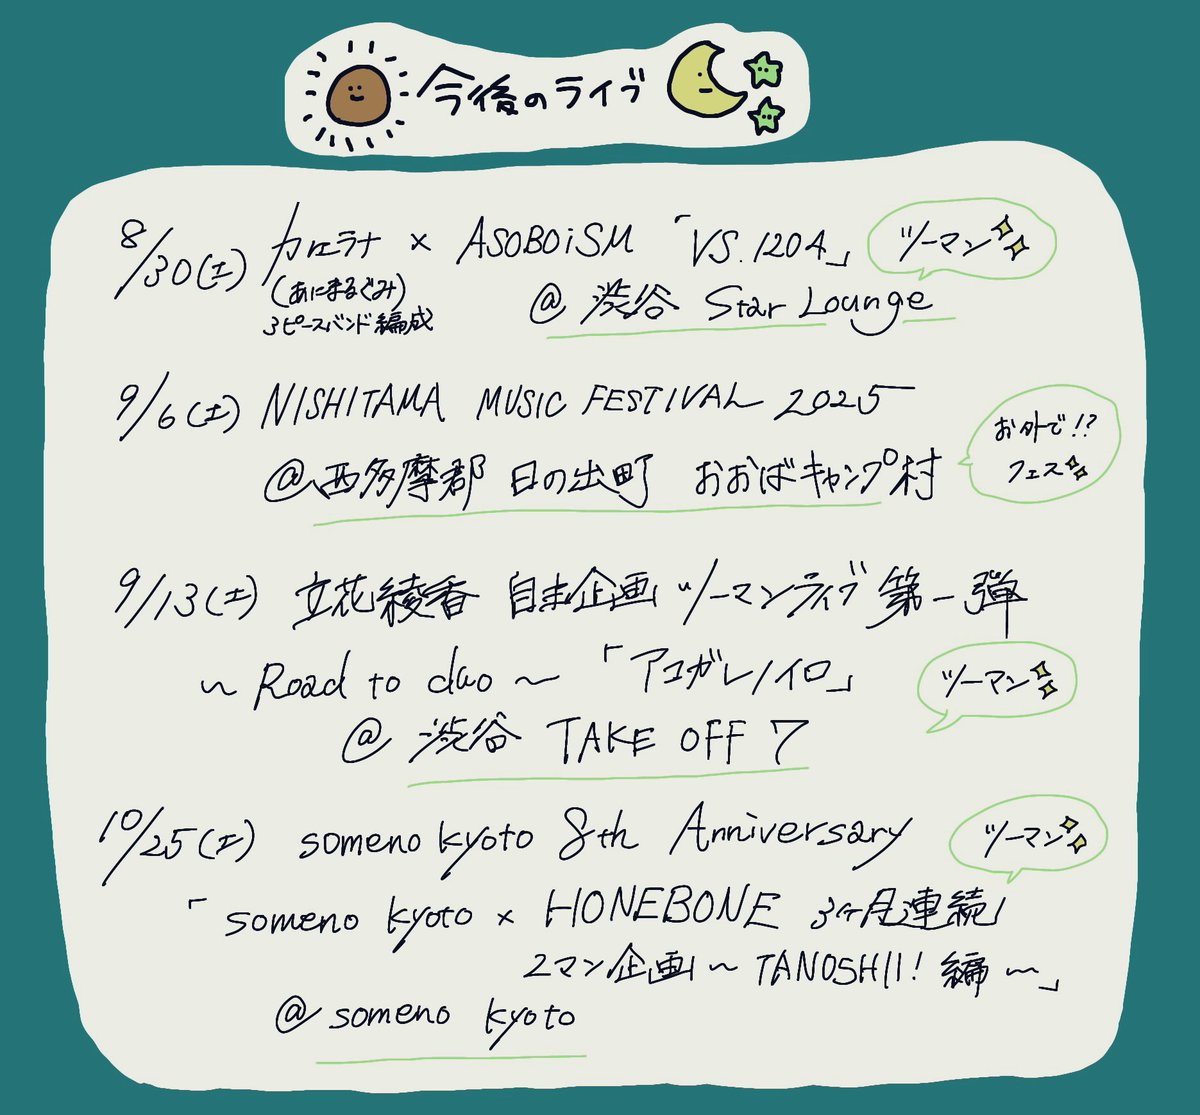 今後のライブ
8/30(土) カロラナ × ASOBOiSM 「VS.1204」
ツーマン
(あにまるぐみ)
3ピースバンド編成
@ 渋谷 Star Lounge
9/6(土) NISHITAMA MUSIC FESTIVAL 2025
@西多摩郡 日の出町 おおばキャンプ村
お外で!?
フェス
9/13(土) 立花綾香 自主企画 ツーマンライブ 第一弾
〜 Road to duo 〜 「アコガレノイロ」
ツーマン
@ 渋谷 TAKE OFF 7
10/25(土) someno kyoto 8th Anniversary
ツーマン
「someno kyoto × HONEBONE 3ヶ月連続
2マン企画 〜 TANOSHII! 編 〜」
@ someno kyoto